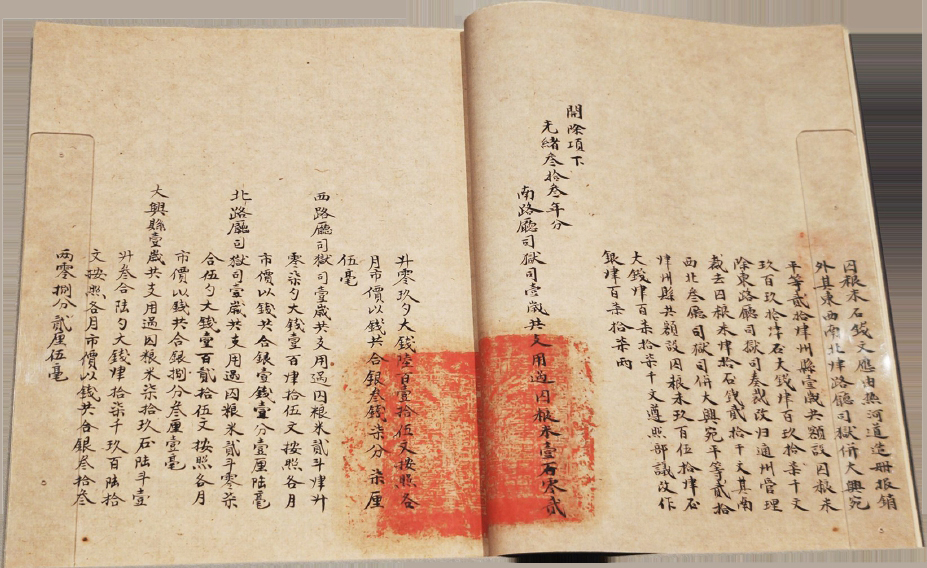 囚粮米石錢文應由熱河道造冊報銷
外其東西南北肆路廳司獄併大興宛
平等貳拾肆州縣壹歲共額設囚粮米
玖百玖拾肆石大錢肆百玖拾柒千文
除東路廳司獄司奉裁改归通州管理
裁去囚粮米肆拾石錢貳拾千文其南
西北叁廳司獄司併大興宛平等貳拾
肆州縣共額設囚粮米玖百伍拾肆石
大錢肆百柒拾柒千文遵照部議改作
銀肆百柒拾柒兩
開除項下
光緒叁拾叁年分
南路廳司獄司壹歲共支用過囚粮米壹石零貳
升零玖勺大錢陸百壹拾伍文按照各
月市價以錢共合銀叁錢柒分柒厘
伍毫
西路廳司獄司壹歲共支用過囚粮米貳斗肆升
零柒勺大錢壹百肆拾伍文按照各月
市價以錢共合銀壹錢壹分壹厘陸毫
北路廳司獄司壹歲共支用過囚粮米貳斗零柒
合伍勺大錢壹百貳拾伍文按照各月
市價以錢共合銀捌分叁厘壹毫
大興縣壹歲共支用過囚粮米柒拾玖石陸斗壹
升叁合陸勺大錢肆拾柒千玖百陸拾
文按照各月市價以錢共合銀叁拾叁
兩零捌分貳厘伍毫